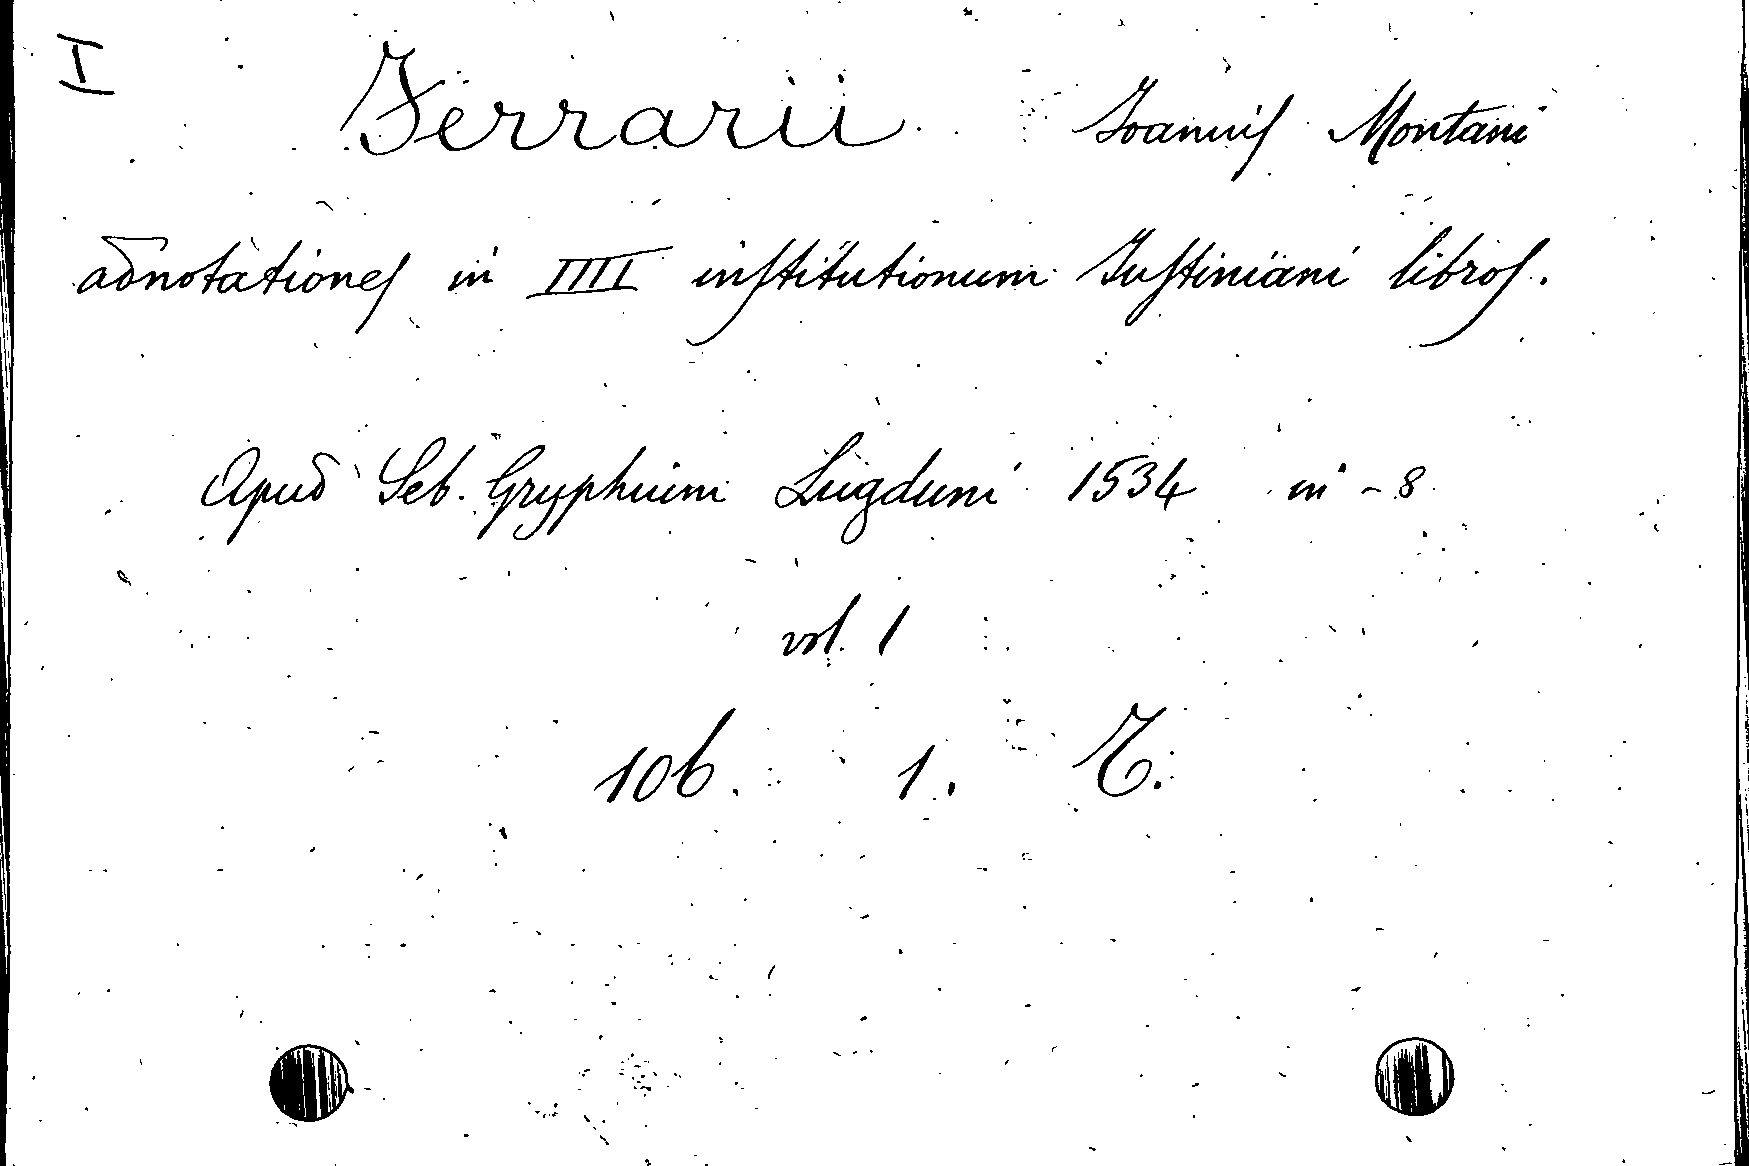 I Ferrarii Ioannis Montani
adnotationes in IIII institutionum Iustiniani libros.
Apud Seb. Gryphium Lugduni 1534 in - 8
vol. 1
106. 1.